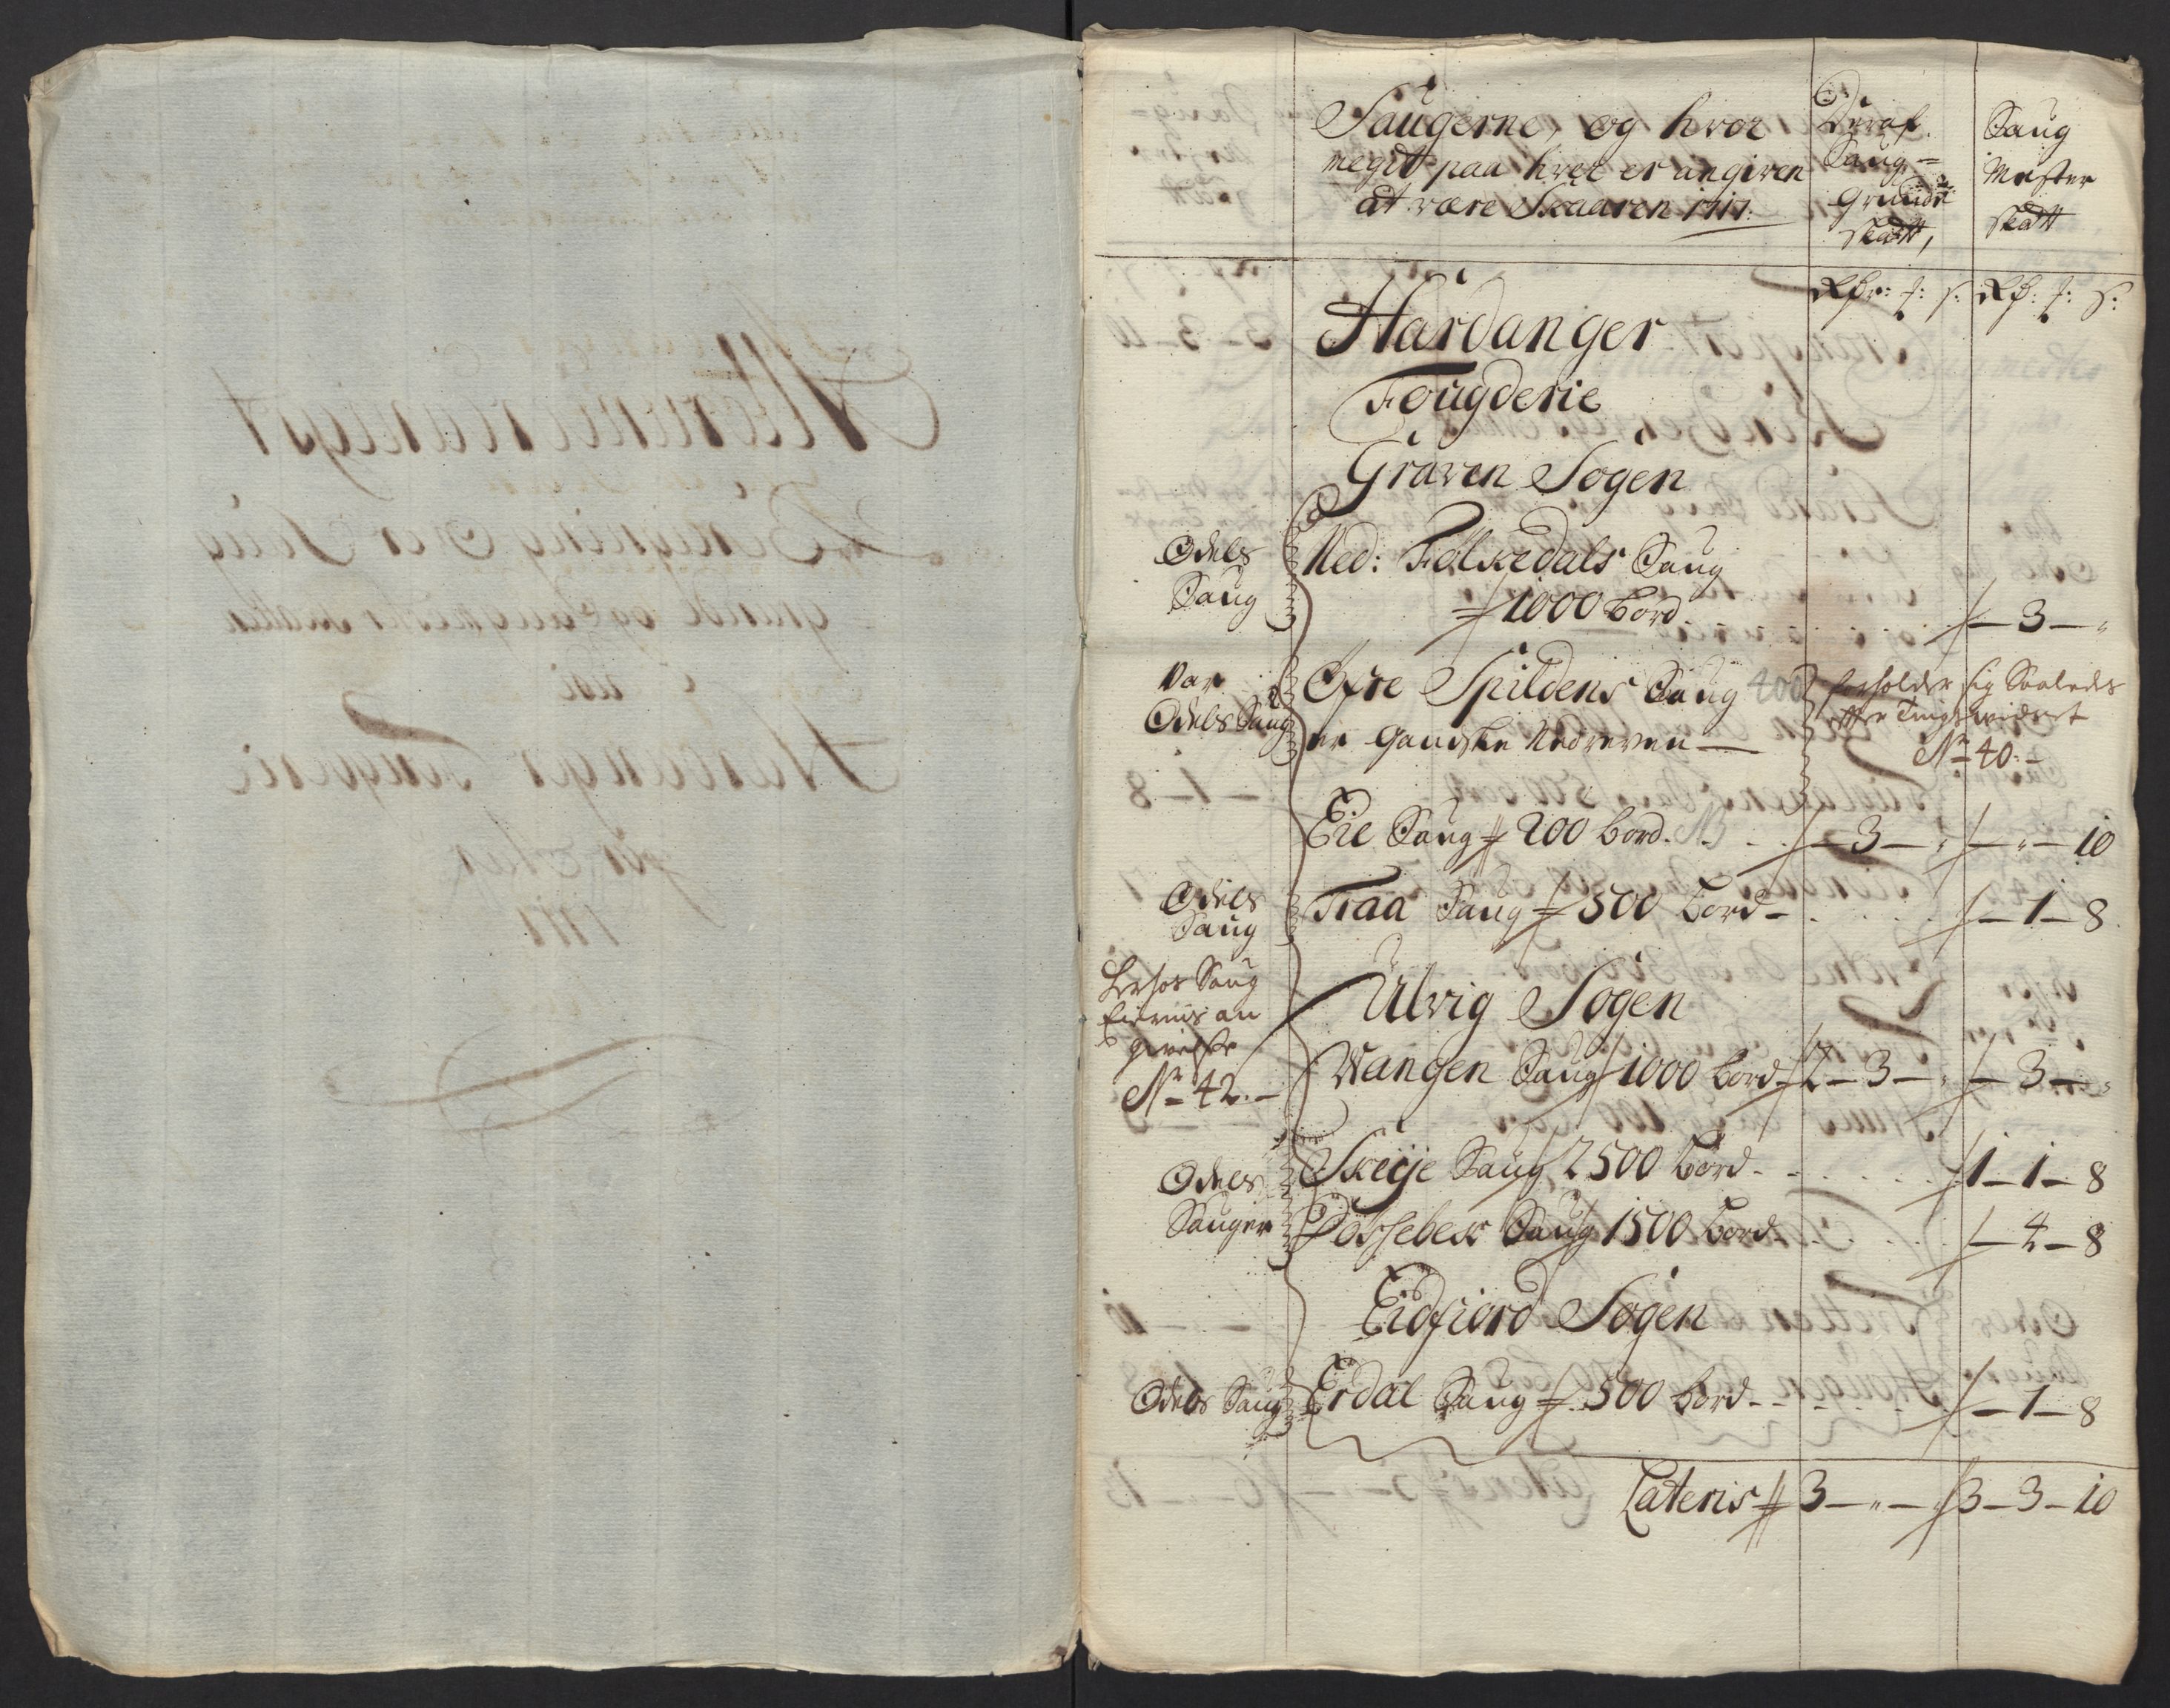 Saugerne, og hvor
megit paa hver er angiven
at være Skaaren 1717.
Deraf
Saug=
Grunde
skatt,
Saug
Mester
skatt
Rdr: f: s: Rd: f: s:
Hardanger
Fougderie
Graven Sogen
Odels
Saug
Ned: Folkedals Saug
1000 bord . . — 3 — "
Var
Odels Saug
Øfre Spildens Saug 400
er Gandske Nedreven —
forholder sig Saaledes
effter Tings widnet
No 40.-
Eie Saug 200 bord. . . — 3 — " — " — 10
Odels
Saug
Traa Saug 500 bord - . . . — 1 — 8
Ulvig Sogen
Saug
No 42. —
Wangen Saug 1000 bord 2 — 3 — " — 3 — "
Odels
Sauger
Skeije Saug 2500 bord - - . . . 1 — 1 — 8
Saug 1500 bord . . . — 4 — 8
Eidfiord Sogen
Odels Saug
Erdal Saug 500 bord - - . . . — 1 — 8
Lateris 3 — " — " 3 — 3 — 10